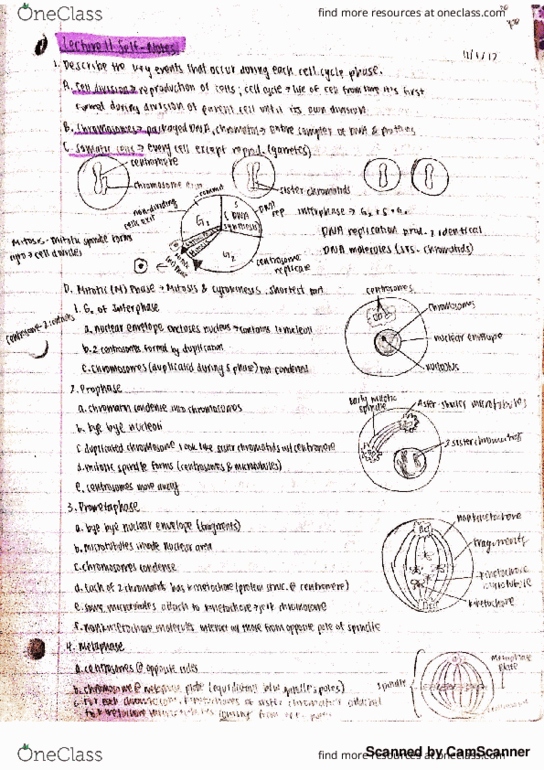 OneClass
find more resources at oneclass.com
Lecture 11 Self-Notes
11/1/17
1. Describe the key events that occur during each cell cycle phase.
A. Cell division → reproduction of cells; cell cycle → life of cell from time it's first
formed during division of parent cell until its own division
B. Chromosomes → packaged DNA, chromatin → entire complex of DNA & proteins
C. Somatic cells → every cell except reprod. (gametes)
centromere
chromosome arm
sister chromatids
non-dividing
cells exit
G1
S
(DNA
synthesis)
DNA
rep.
interphase → G1 + S + G2
DNA replication prod. 2 identical
DNA molecules (sis. chromatids)
Mitosis - mitotic spindle forms
cyto → cell divides
G2
centrosome
replicate
D. Mitotic (M) Phase → Mitosis & cytokinesis, shortest part
1. G2 of Interphase
a. nuclear envelope encloses nucleus → contains 1+ nucleoli
b. 2 centrosomes formed by duplication
c. Chromosomes (duplicated during S phase) not condensed
centrosome = 2 centrioles
centrosomes
chromosomes
nuclear envelope
nucleolus
2. Prophase
a. chromatin condense into chromosomes
b. bye bye nucleoli
c. duplicated chromosome look like sister chromatids w/ centromere
d. mitotic spindle forms (centrosomes & microtubules)
e. centrosomes move away
early mitotic
spindle
Aster - shorter microtubules
2 sister chromatids
3. Prometaphase
a. bye bye nuclear envelope (fragments)
b. microtubules invade nuclear area
c. chromosomes condense
d. each of 2 chromatids has kinetochore (protein struc. @ centromere)
e. some microtubules attach to kinetochore → jerk chromosome
f. nonkinetochore molecules interact w/ those from opposite pole of spindle
nonkinetochore
fragments
kinetochore
microtubule
kinetochore
4. Metaphase
a. centrosomes @ opposite sides
b. chromosome @ metaphase plate (equidistant b/w spindle's poles)
c. For each chromosome, kinetochores of sister chromatids attached
to kinetochore microtubules coming from opp. poles
spindle
Metaphase
plate
centrosome
OneClass
find more resources at oneclass.com
Scanned by CamScanner